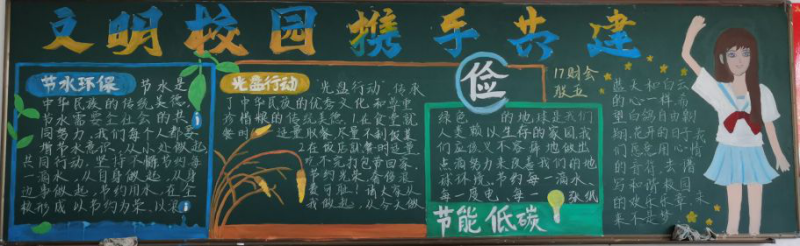 文明校园携手共建
节水环保
节水是
中华民族的传统美德,
节水需要全社会的共
同努力,我们每个人都要
增节水意识,从小处做起,
共同行动,坚持不懈节约每
一滴水,从自身做起,从身
边事做起,节约用水,在全
校形成以节约为荣,以浪
光盘行动
光盘行动,传承
了中华民族的优秀文化和尊重
珍惜粮的传统美德.1在食堂就
餐时
适量取餐,尽量不剩饭菜
2在饭店就餐时适量
吃不完打包带回家
节约光荣,奢侈浪
费可耻!请大家从
我做起,从今天做
俭
17财会
张五
绿色
的地球是我们
人类赖以生存的家园,我
们应该义不容辞地做出
点滴努力来改善我们的地
球环境.节约每一滴水、
每一度电、每一
张纸
节能低碳
蓝天和白云
的心一样,希
望白鸽自由翱
翔,花开的日子我
们愿意用心情
的音符,去谱
写和谐校园
的欢乐乐章,未
来不是梦